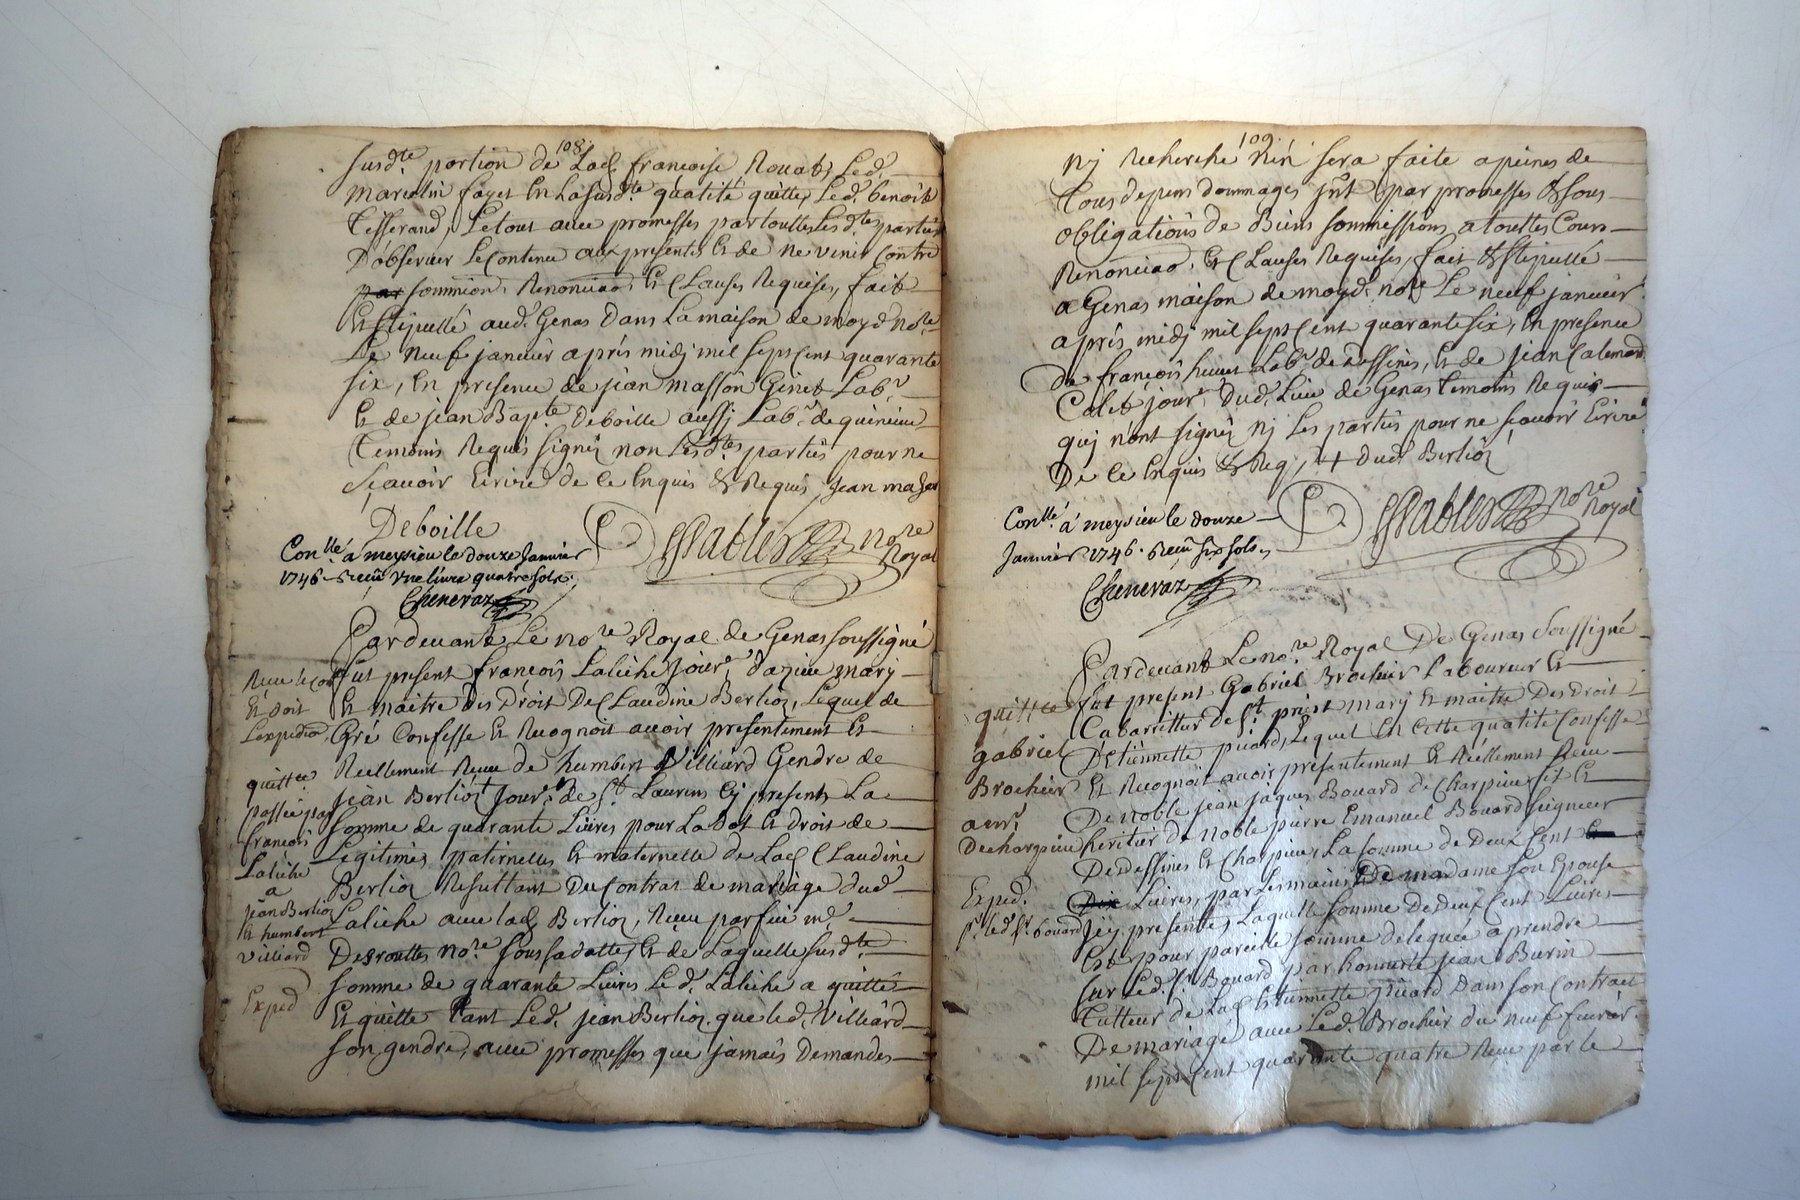 108.
susd.te portion de Lad. francoise Rouat, Led.
marcelin fayet En Lasusd.te qualité quitte Led. benoit
Tisserand, Le tout avec promesses par touttes Lesd.tes parties
D'observer Le Contenu aux presentes Et de ne venir Contre
par soumnion. Renonciao. Et Clauses Requises, fait
Et stipullé aud. Genas Dans La maison de moyd. no.re
Le neuf janvier après midj mil sept Cent quarante
six, En presence de jean masson Genet Lab.r
Et de jean Bap.te Deboille aussj Lab.r de
Temoins Requis signés non Lesd.tes parties pour ne
sçavoir Ecrire de ce Enquis & Requis, Jean mason
Deboille
no.re Royal
Con.llé a meysieu le douze Janvier
1746. Receu une livre quatre sols.
Cheneraz
Pardevant Le no.re Royal de Genas soussigné
fut present francois Laliche Jour.r d'azieu mary
Et maitre des Droit De Claudine Berlioz, Lequel de
Gré Confesse Et Recognoit avoir presentement Et
Reellement Receu de humbert Villiard Gendre de
jean Berlioz Jour.r De S.t Laurens Cy present, La
somme de quarante Livres pour La Dot Et droit de
Legitimes paternelle Et maternelle de Lad. Claudine
Berlioz Resultant Du Contrat de mariage dud.
Laliche avec lad. Berlioz, Receu par feu m.e
Desrouttes no.re sous sa datte, Et de Laquelle susd.te
somme de quarante Livres Led. Laliche a quitté
Et quitte tant Led. jean Berlioz que led. Villiard
son gendre, avec promesses que jamais Demandes
Et doit
L'expedio.
quitt.ce
passée par
francois
Laliche
a
jean Berlioz
Et humbert
Villiard
Exped
109.
nj Recherche n'en sera faite a peines de
Tous depens dommages jnt. par promesses & sous
obligations de Biens soumissions a touttes Cours
Renonciao. Et Clauses Requises, fait & stipullé
a Genas maison de moyd. no.re Le neuf janvier
après midj mil sept Cent quarante six, En presence
De francois Lab.r de Dessines, Et de jean
Calet jour.r Dud. Lieu de Genas Temoins Requis
quj n'ont signés nj Les parties pour ne sçavoir Ecrire
De ce Enquis & Req, + dud. Berlioz
no.re Royal
Con.llé a meysieu le douze
Janvier 1746. Receu six sols.
Cheneraz
Pardevant Le no.re Royal De Genas soussigné
fut present Gabriel Brochier Laboureur Et
Cabarettier de S.t priest mary Et maitre Des Droit
D'Etiennette picard, Lequel En cette qualité Confesse
Et Recognoit avoir presentement Et Reellement Receu
De noble jean jaques Bouard De Charpieu fit Et
heritier de noble pierre Emanuel Bouard seigneur
De Dessines Et Charpieu, La somme de Deux Cent Et
Dix Livres, par Les mains De madame son Epouse
jcy presente, Laquelle somme De deux Cent Livres
Est pour pareille somme deleguée a prendre
sur Led. s.r Bouard par honneste jean Burin
Tutteur de Lad. Etiennette picard Dans son Contract
De mariage avec Led. Brochier du neuf fuvrier
mil sept Cent quarante quatre Receu par le
quitt.ce
gabriel
Brochier
a m.r
Decharpieu
Exped.
p.r led. s.r bouard